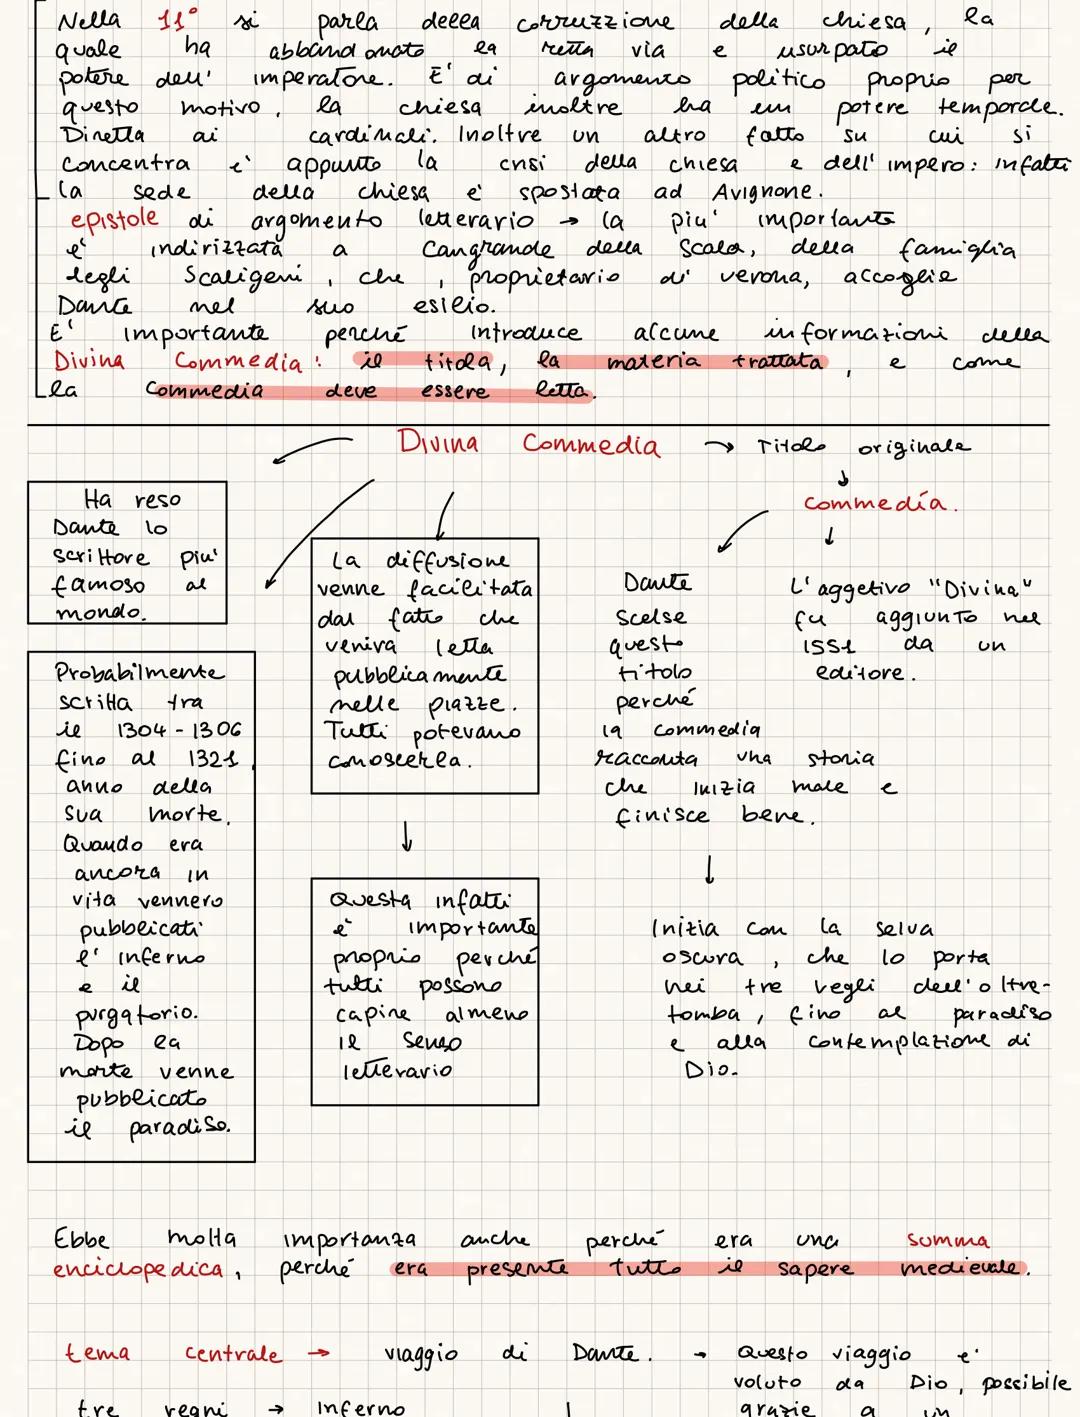 Nella 11° si parla della corruzzione della chiesa, la
quale ha abbandonato la retta via e usurpato il
potere dell' imperatore. E' di argomento politico proprio per
questo motivo, la chiesa inoltre ha un potere temporale.
Diretta ai cardinali. Inoltre un altro fatto su cui si
concentra e' appunto la crisi della chiesa e dell' impero: infatti
la sede della chiesa e' spostata ad Avignone.
epistole di argomento letterario → la piu' importante
e' indirizzata a Cangrande della Scala, della famiglia
degli Scaligeri, che, proprietario di verona, accoglie
Dante nel suo esilio.
E' importante perché introduce alcune informazioni della
Divina Commedia: il titolo, la materia trattata, e come
la commedia deve essere letta.
Divina Commedia → Titolo originale
↓
commedía.
Ha reso
Dante lo
scrittore piu'
famoso al
mondo.
Probabilmente
scritta tra
il 1304-1306
fino al 1321
anno della
sua morte.
Quando era
ancora in
vita vennero
pubblicati
l' inferno
e il
purgatorio.
Dopo la
morte venne
pubblicato
il paradiso.
La diffusione
venne facilitata
dal fatto che
veniva letta
pubblicamente
nelle piazze.
Tutti potevano
conoscerla.
↓
Questa infatti
e' importante
proprio perché
tutti possono
capire almeno
il senso
letterario
Dante
scelse
questo
titolo
perché
la commedia
racconta una storia
che inizia male e
finisce bene.
↓
Inizia con la selva
oscura, che lo porta
nei tre regli dell'oltre-
tomba, fino al paradiso
e alla contemplazione di
Dio.
↓
L'aggetivo "Divina"
fu aggiunto nel
1551 da un
editore.
Ebbe molta importanza anche perché era una summa
enciclopedica, perché era presente tutto il sapere medievale.
tema centrale → viaggio di Dante. → Questo viaggio e'
voluto da Dio, possibile
tre regni → Inferno
grazie a un